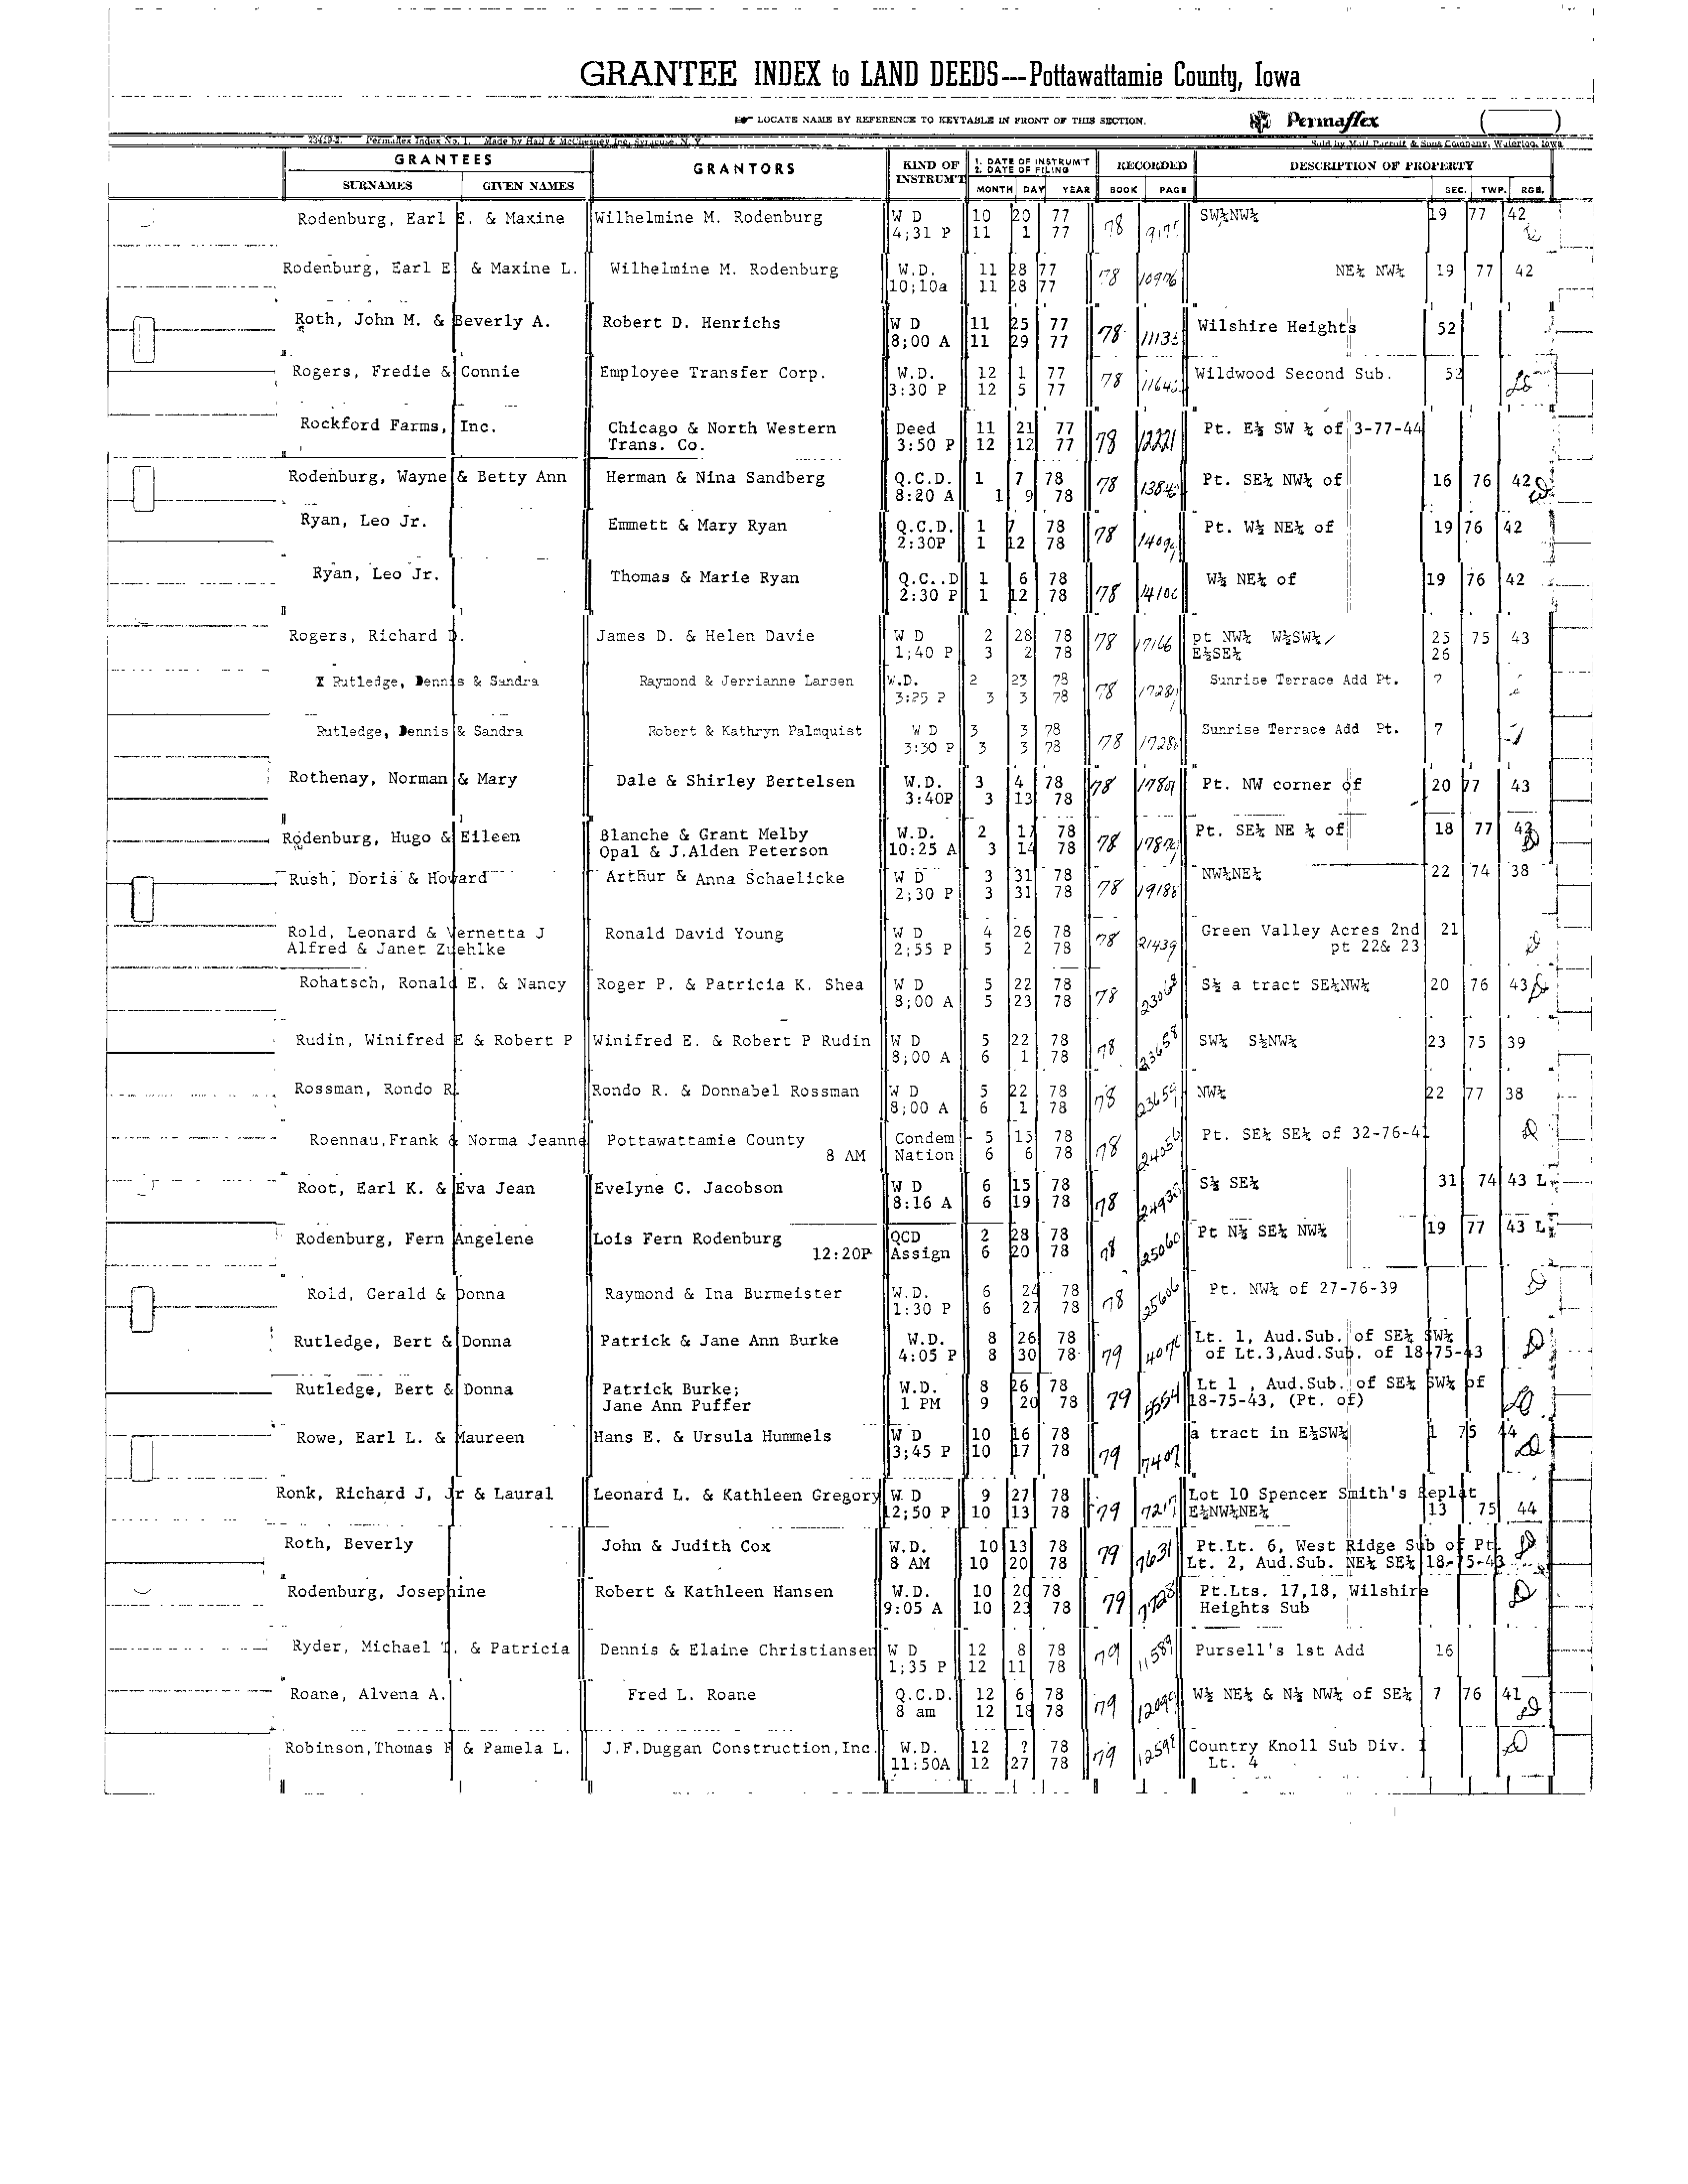 GRANTEE INDEX to LAND DEEDS---Pottawattamie County, Iowa
LOCATE NAME BY REFERENCE TO KEYTABLE IN FRONT OF THIS SECTION. Permaflex
23419-2 Permaflex Index No. 1. Made by Hall & McChesney Inc. Syracuse, N. Y. Sold by Matt Parrott & Sons Company, Waterloo, Iowa
GRANTEES GRANTORS KIND OF INSTRUM'T 1. DATE OF INSTRUM'T 2. DATE OF FILING RECORDED DESCRIPTION OF PROPERTY
SURNAMES GIVEN NAMES MONTH DAY YEAR BOOK PAGE SEC. TWP. RGE.
Rodenburg, Earl E. & Maxine Wilhelmine M. Rodenburg W D 10 20 77 78 SW¼NW¼ 19 77 42
4;31 P 11 1 77
Rodenburg, Earl E & Maxine L. Wilhelmine M. Rodenburg W.D. 11 28 77 78 10976 NE¼ NW¼ 19 77 42
10;10a 11 28 77
Roth, John M. & Beverly A. Robert D. Henrichs W D 11 25 77 78 Wilshire Heights 52
8;00 A 11 29 77
Rogers, Fredie & Connie Employee Transfer Corp. W.D. 12 1 77 78 Wildwood Second Sub. 52
3:30 P 12 5 77
Rockford Farms, Inc. Chicago & North Western Deed 11 21 77 78 12221 Pt. E½ SW ¼ of 3-77-44
Trans. Co. 3:50 P 12 12 77
Rodenburg, Wayne & Betty Ann Herman & Nina Sandberg Q.C.D. 1 7 78 78 Pt. SE¼ NW¼ of 16 76 42
8:20 A 1 9 78
Ryan, Leo Jr. Emmett & Mary Ryan Q.C.D. 1 7 78 78 Pt. W½ NE¼ of 19 76 42
2:30P 1 12 78
Ryan, Leo Jr. Thomas & Marie Ryan Q.C..D 1 6 78 78 W½ NE¼ of 19 76 42
2:30 P 1 12 78
Rogers, Richard D. James D. & Helen Davie W D 2 28 78 78 17166 pt NW¼ W½SW¼ 25 75 43
1;40 P 3 2 78 E½SE¼ 26
X Rutledge, Dennis & Sandra Raymond & Jerrianne Larsen W.D. 2 23 78 78 Sunrise Terrace Add Pt. 7
3:25 P 3 3 78
Rutledge, Dennis & Sandra Robert & Kathryn Palmquist W D 3 3 78 78 Sunrise Terrace Add Pt. 7
3:30 P 3 3 78
Rothenay, Norman & Mary Dale & Shirley Bertelsen W.D. 3 4 78 78 Pt. NW corner of 20 77 43
3:40P 3 13 78
Rodenburg, Hugo & Eileen Blanche & Grant Melby W.D. 2 17 78 78 Pt. SE¼ NE ¼ of 18 77
Opal & J.Alden Peterson 10:25 A 3 14 78
Rush, Doris & Howard Arthur & Anna Schaelicke W D 3 31 78 78 19188 NW¼NE¼ 22 74 38
2;30 P 3 31 78
Rold, Leonard & Vernetta J Ronald David Young W D 4 26 78 78 21439 Green Valley Acres 2nd 21
Alfred & Janet Zuehlke 2;55 P 5 2 78 pt 22& 23
Rohatsch, Ronald E. & Nancy Roger P. & Patricia K. Shea W D 5 22 78 78 23068 S½ a tract SE¼NW¼ 20 76 43
8;00 A 5 23 78
Rudin, Winifred E & Robert P Winifred E. & Robert P Rudin W D 5 22 78 78 23658 SW¼ S½NW¼ 23 75 39
8;00 A 6 1 78
Rossman, Rondo R. Rondo R. & Donnabel Rossman W D 5 22 78 78 23659 NW¼ 22 77 38
8;00 A 6 1 78
Roennau,Frank & Norma Jeanne Pottawattamie County Condem 5 15 78 78 24056 Pt. SE¼ SE¼ of 32-76-41
8 AM Nation 6 6 78
Root, Earl K. & Eva Jean Evelyne C. Jacobson W D 6 15 78 78 24938 S½ SE¼ 31 74 43
8:16 A 6 19 78
Rodenburg, Fern Angelene Lois Fern Rodenburg QCD 2 28 78 78 25060 Pt N½ SE¼ NW¼ 19 77 43
12:20P Assign 6 20 78
Rold, Gerald & Donna Raymond & Ina Burmeister W.D. 6 24 78 78 25606 Pt. NW¼ of 27-76-39
1:30 P 6 27 78
Rutledge, Bert & Donna Patrick & Jane Ann Burke W.D. 8 26 78 79 Lt. 1, Aud.Sub. of SE¼ SW¼
4:05 P 8 30 78 of Lt.3,Aud.Sub. of 18-75-43
Rutledge, Bert & Donna Patrick Burke; W.D. 8 26 78 79 5554 Lt 1 , Aud.Sub. of SE¼ SW¼ of
Jane Ann Puffer 1 PM 9 20 78 18-75-43, (Pt. of)
Rowe, Earl L. & Maureen Hans E. & Ursula Hummels W D 10 16 78 79 7407 a tract in E½SW¼ 1 75 44
3;45 P 10 17 78
Ronk, Richard J, Jr & Laural Leonard L. & Kathleen Gregory W. D 9 27 78 79 7217 Lot 10 Spencer Smith's Replat
12;50 P 10 13 78 E½NW¼NE¼ 13 75 44
Roth, Beverly John & Judith Cox W.D. 10 13 78 79 7631 Pt.Lt. 6, West Ridge Sub of Pt.
8 AM 10 20 78 Lt. 2, Aud.Sub. NE¼ SE¼ 18-75-43
Rodenburg, Josephine Robert & Kathleen Hansen W.D. 10 20 78 79 7728 Pt.Lts. 17,18, Wilshire
9:05 A 10 23 78 Heights Sub
Ryder, Michael T. & Patricia Dennis & Elaine Christiansen W D 12 8 78 79 11589 Pursell's 1st Add 16
1;35 P 12 11 78
Roane, Alvena A. Fred L. Roane Q.C.D. 12 6 78 79 W½ NE¼ & N½ NW¼ of SE¼ 7 76 41
8 am 12 18 78
Robinson,Thomas & Pamela L. J.F.Duggan Construction,Inc. W.D. 12 ? 78 79 Country Knoll Sub Div. 1
11:50A 12 27 78 Lt. 4